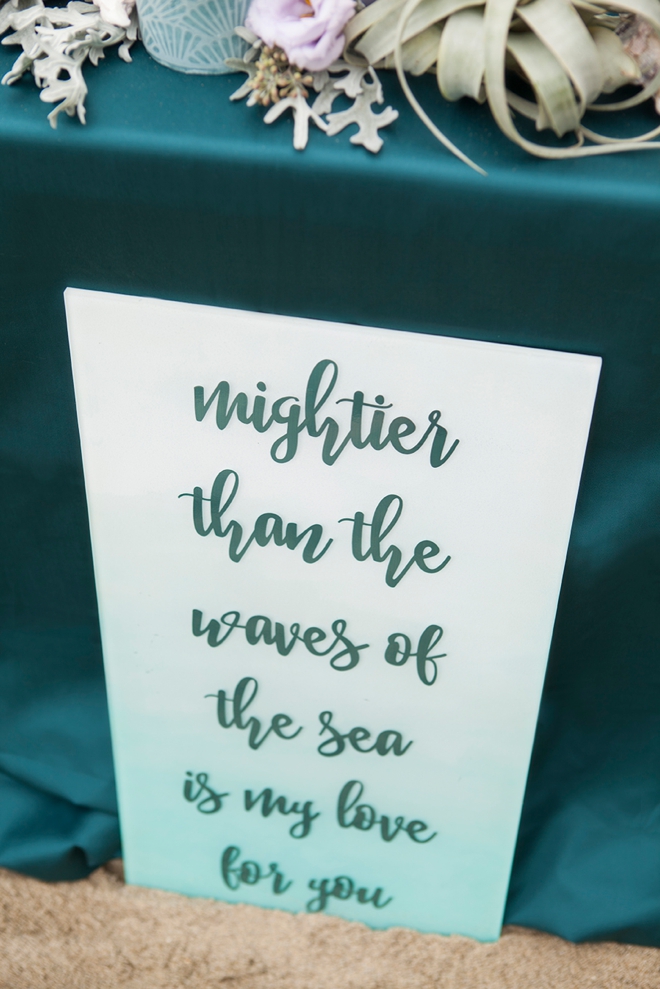 mightier
than the
waves of
the sea
is my love
for you